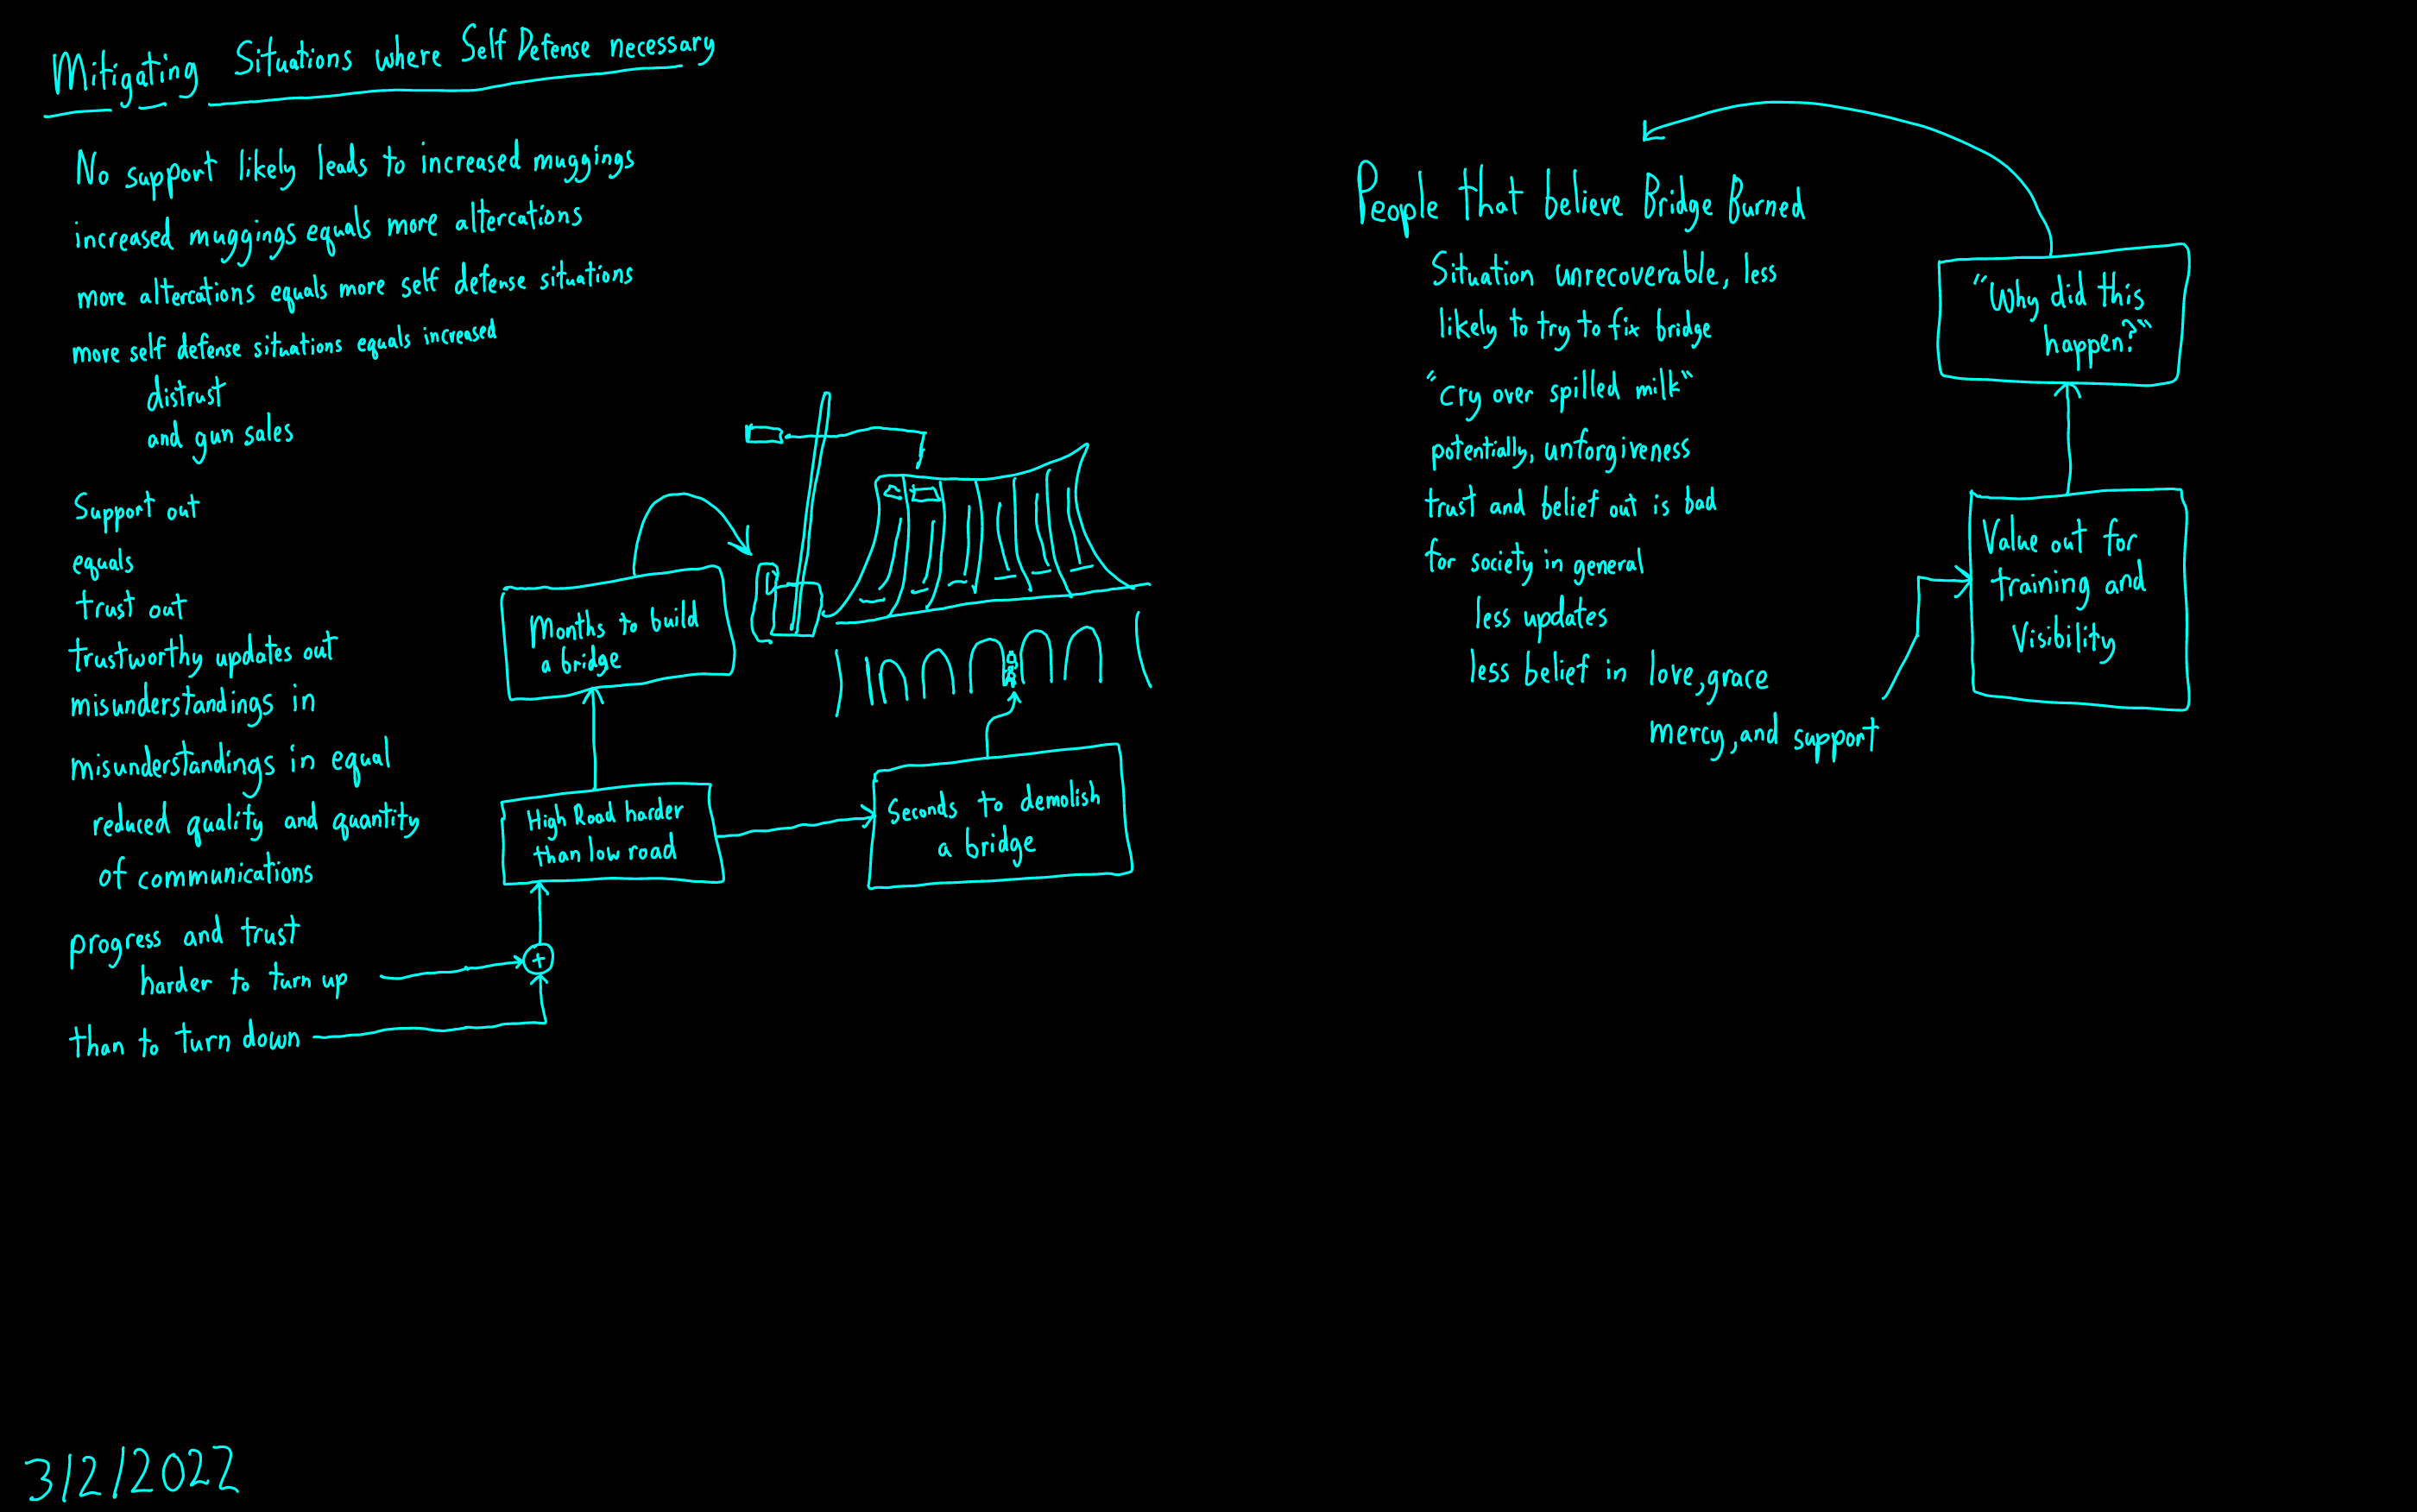 Mitigating Situations where Self Defense necessary
No support likely leads to increased muggings
increased muggings equals more altercations
more altercations equals more self defense situations
more self defense situations equals increased
distrust
and gun sales
Support out
equals
trust out
trustworthy updates out
misunderstandings in
misunderstandings in equal
reduced quality and quantity
of communications
progress and trust
harder to turn up
than to turn down
+
High Road harder
than low road
Months to build
a bridge
Seconds to demolish
a bridge
People that believe Bridge Burned
Situation unrecoverable, less
likely to try to fix bridge
"cry over spilled milk"
potentially, unforgiveness
trust and belief out is bad
for society in general
less updates
less belief in love, grace
mercy, and support
Value out for
training and
Visibility
"Why did this
happen?"
3/2/2022